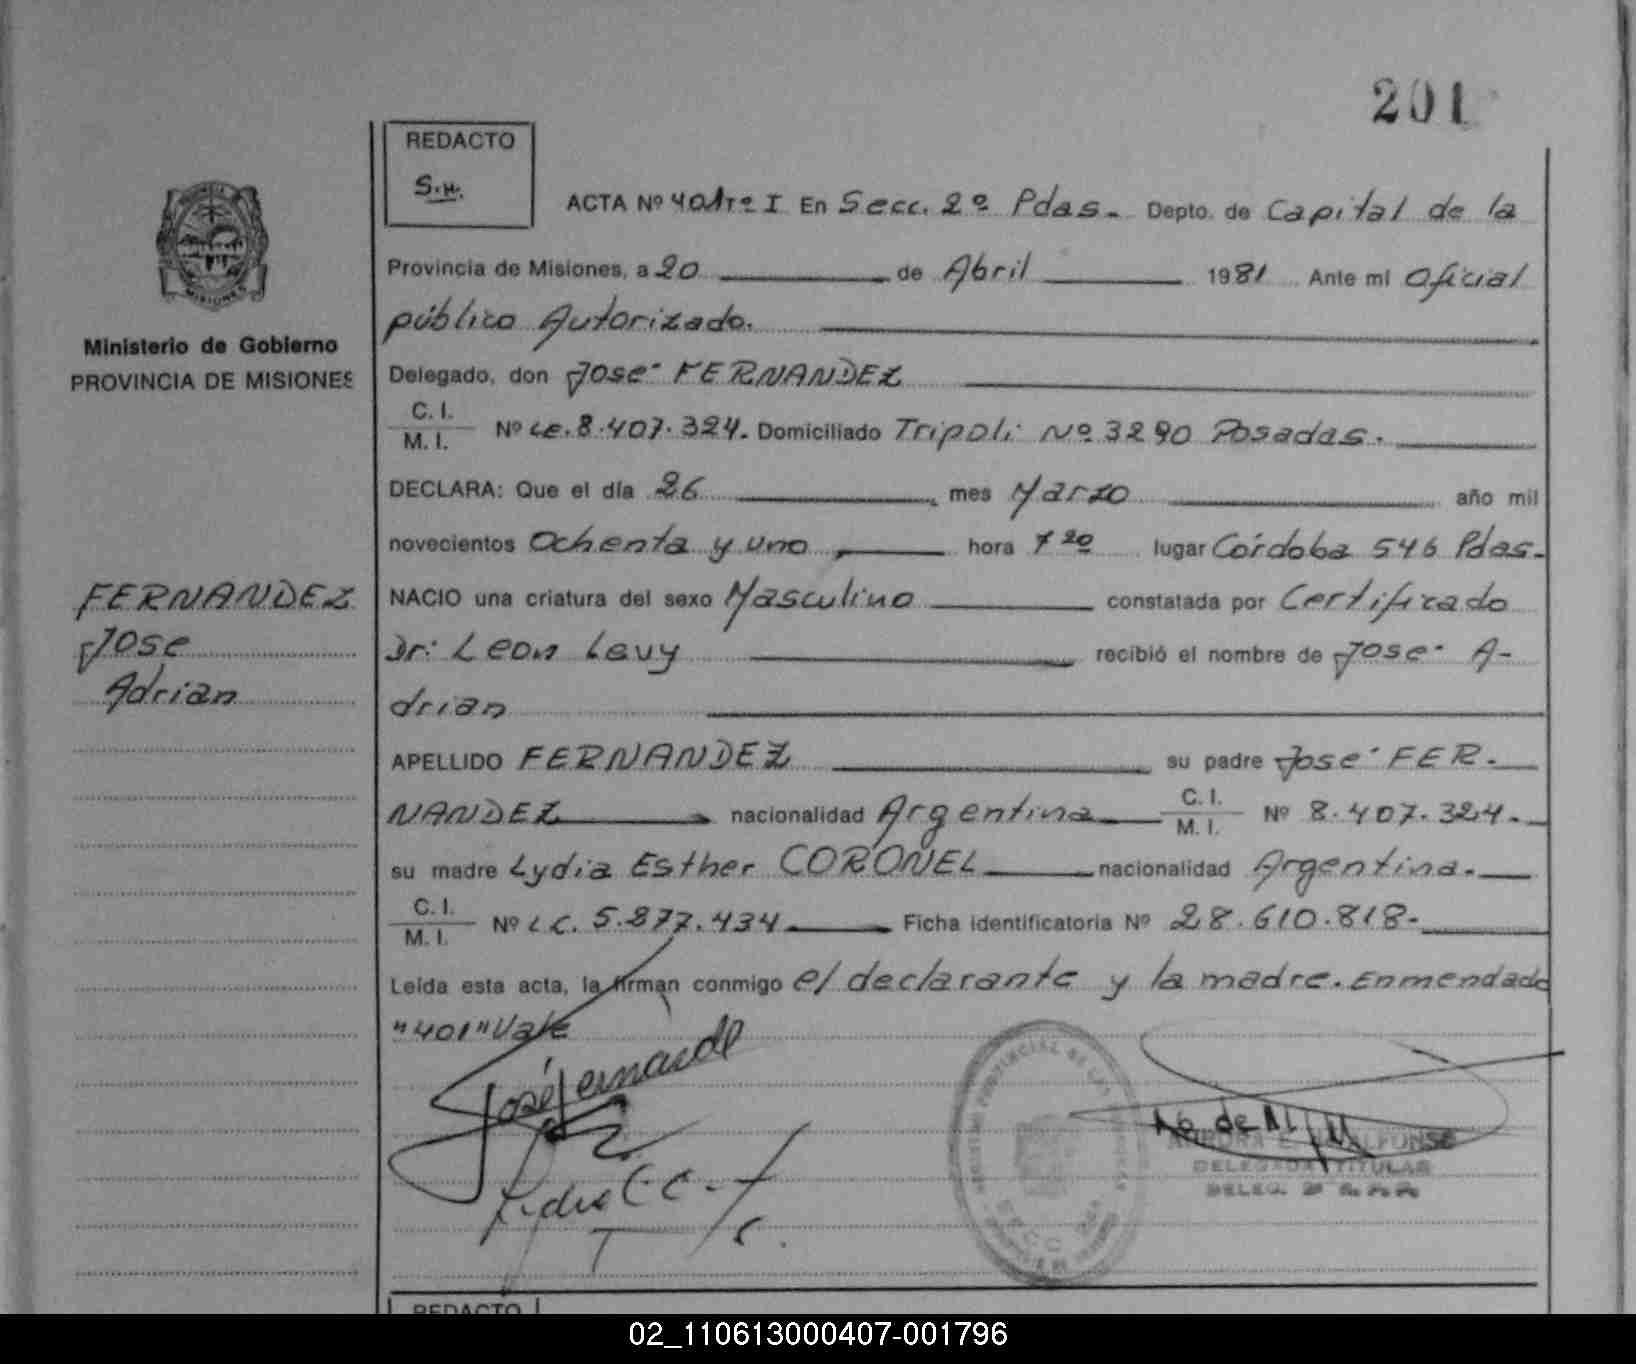 201
REDACTO
S.H.
ACTA Nº 401 Tº I En Secc. 2º Pdas. Depto. de Capital de la
Provincia de Misiones, a 20 de Abril 1981 Ante mi Oficial
público Autorizado.
Delegado, don José FERNANDEZ
C. I.
M. I. Nº LE. 8.407.324. Domiciliado Tripoli Nº 3290 Posadas.
DECLARA: Que el día 26 mes Marzo año mil
novecientos Ochenta y uno, hora 7 20 lugar Córdoba 546 Pdas.
NACIO una criatura del sexo Masculino constatada por Certificado
Dr: Leon Levy recibió el nombre de José A-
drian
APELLIDO FERNANDEZ su padre José FER-
NANDEZ nacionalidad Argentina C. I.
M. I. Nº 8.407.324.
su madre Lydia Esther CORONEL nacionalidad Argentina.
C. I.
M. I. Nº LC. 5.877.434 Ficha identificatoria Nº 28.610.818-
Leída esta acta, la firman conmigo el declarante y la madre. Enmendado
"401" Vale
José Fernandez
DELEGADA TITULAR
Ministerio de Gobierno
PROVINCIA DE MISIONES
MISIONES
FERNANDEZ
Jose
Adrian
REDACTO
02_110613000407-001796